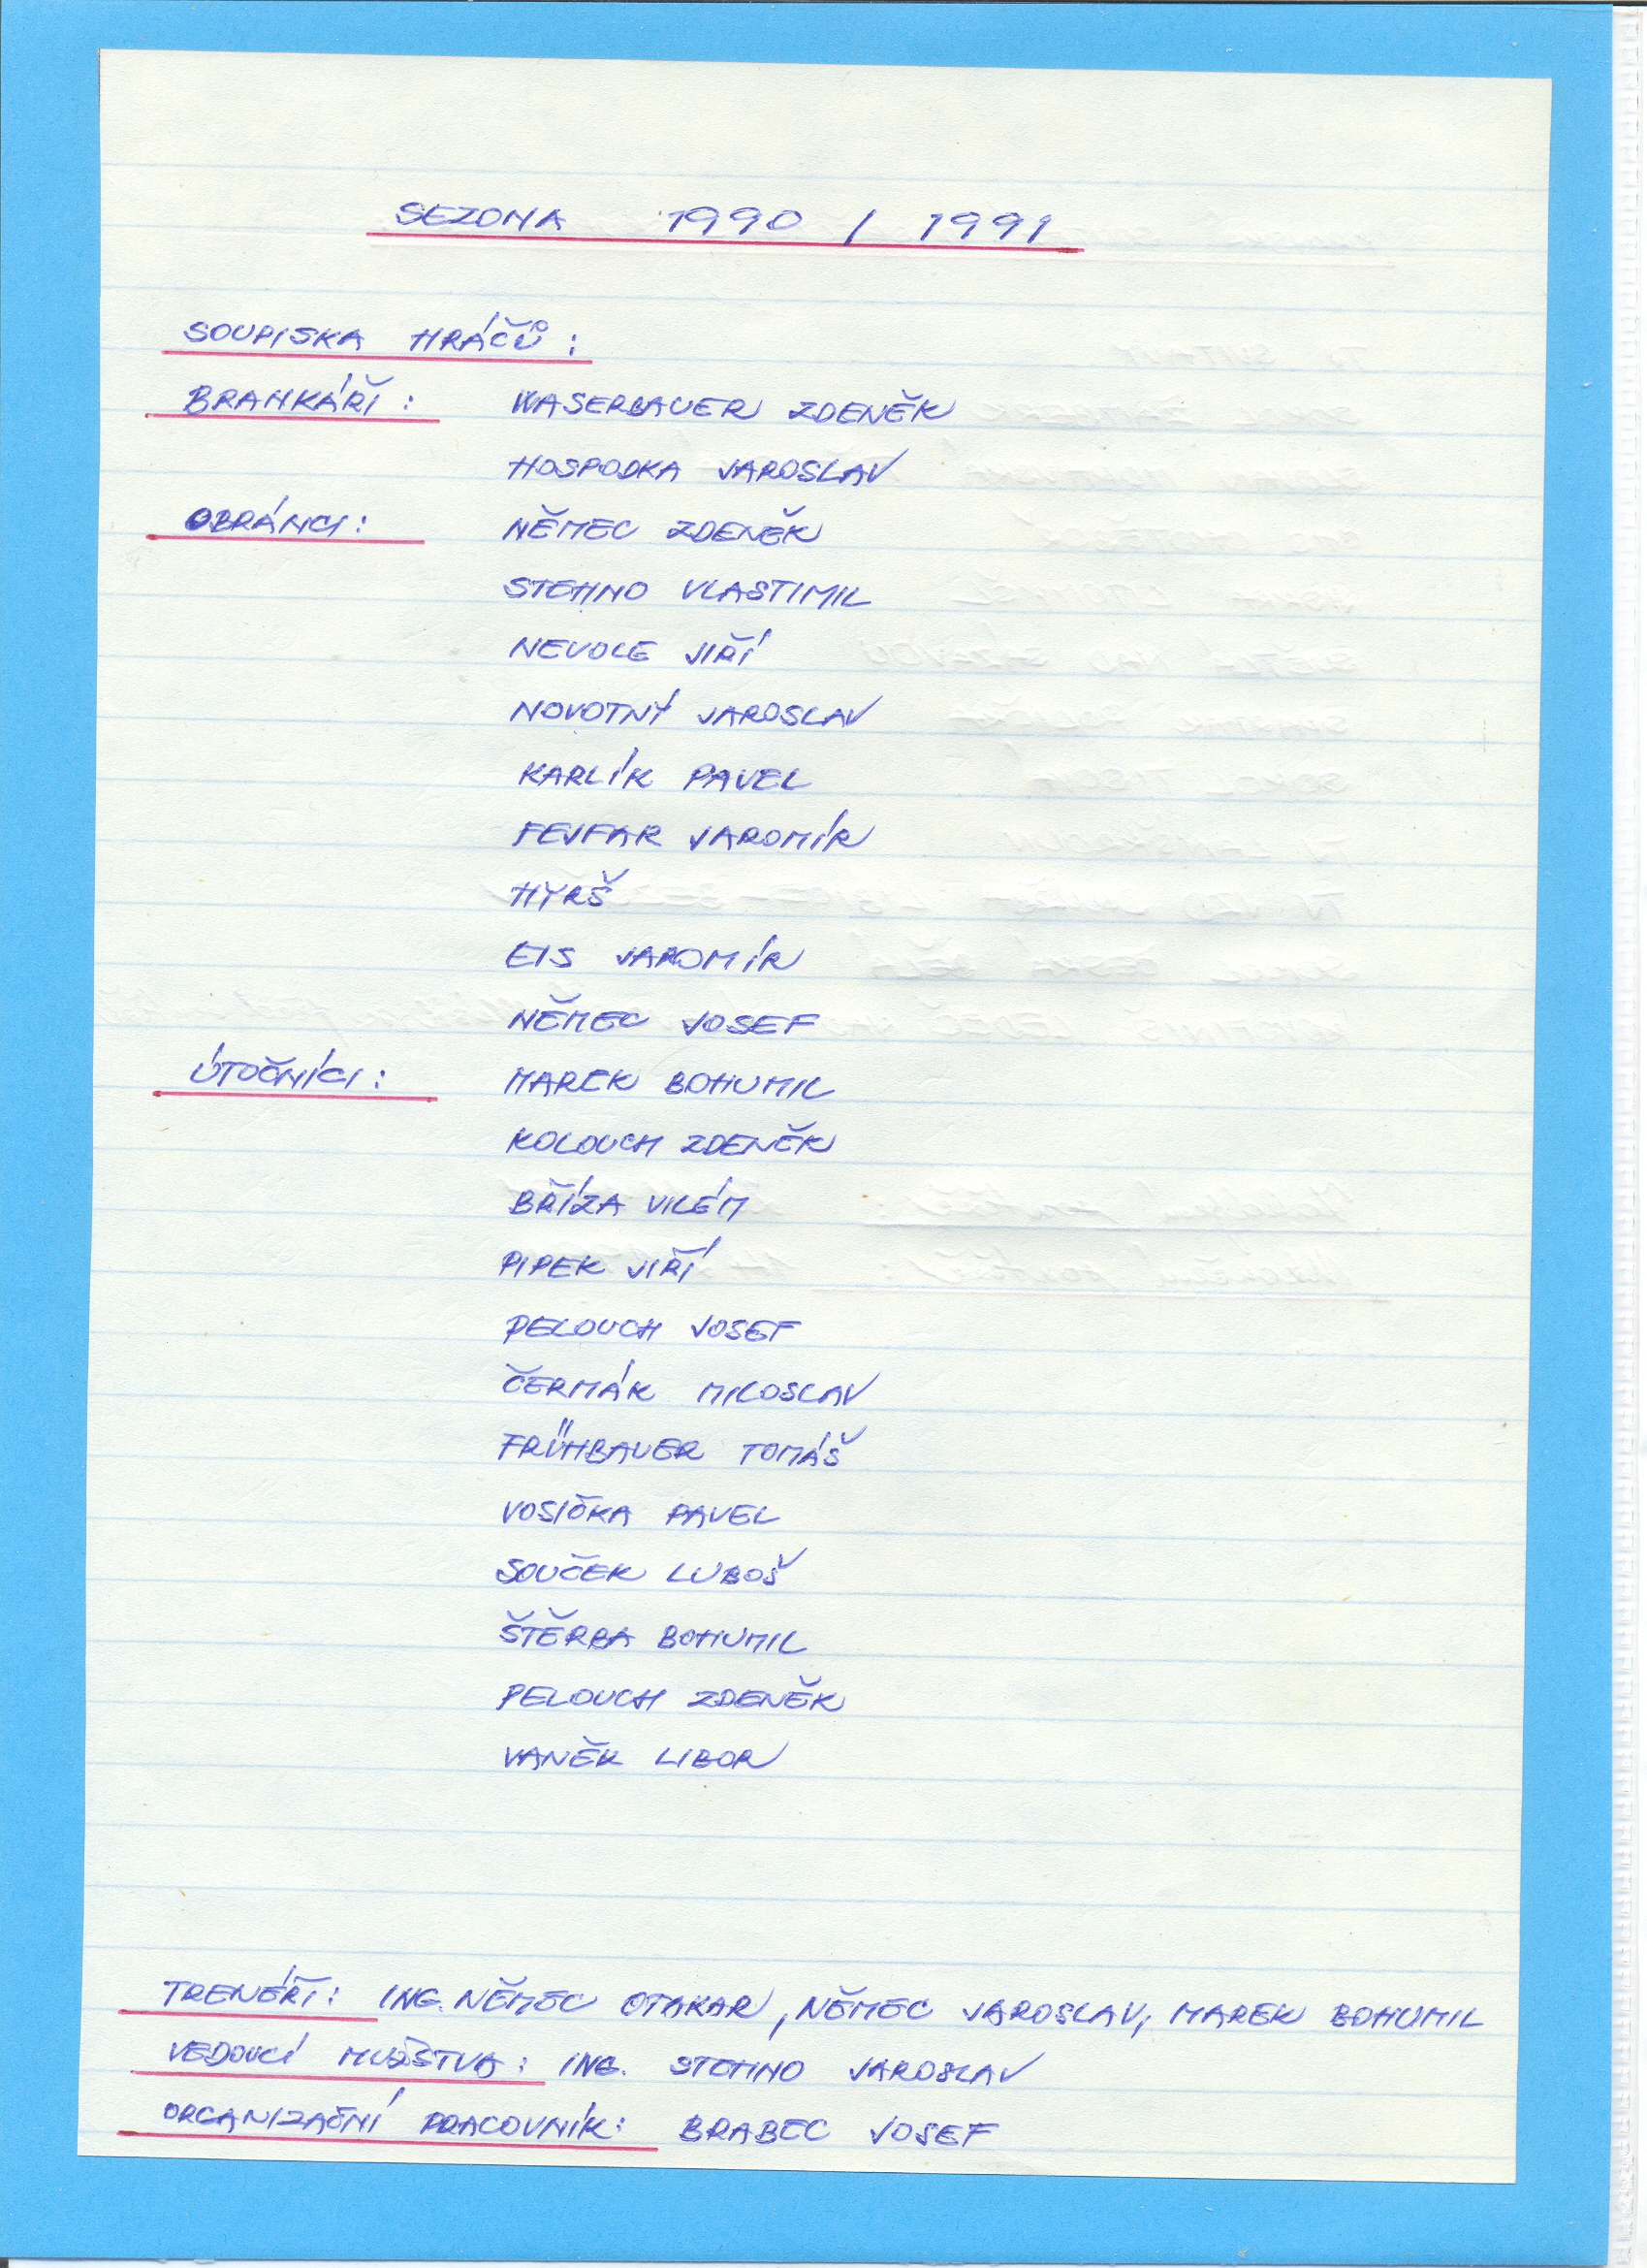 SEZONA 1990 / 1991
SOUPISKA HRÁČŮ :
BRANKÁŘI : WASERBAUER ZDENĚK
HOSPODKA JAROSLAV
OBRÁNCI : NĚMEC ZDENĚK
STEHNO VLASTIMIL
NEVOLE JIŘÍ
NOVOTNÝ JAROSLAV
KARLÍK PAVEL
FEJFAR JAROMÍR
HYRŠ
EIS JAROMÍR
NĚMEC JOSEF
ÚTOČNÍCI : MAREK BOHUMIL
KOLOUCH ZDENĚK
BŘÍZA VILÉM
PIPEK JIŘÍ
PELOUCH JOSEF
ČERMÁK MILOSLAV
FRÜHBAUER TOMÁŠ
VOSIČKA PAVEL
SOUČEK LUBOŠ
ŠTĚRBA BOHUMIL
PELOUCH ZDENĚK
VANĚK LIBOR
TRENÉŘI : ING. NĚMEC OTAKAR, NĚMEC JAROSLAV, MAREK BOHUMIL
VEDOUCÍ MUŽSTVA : ING. STEHNO JAROSLAV
ORGANIZAČNÍ PRACOVNÍK : BRABEC JOSEF